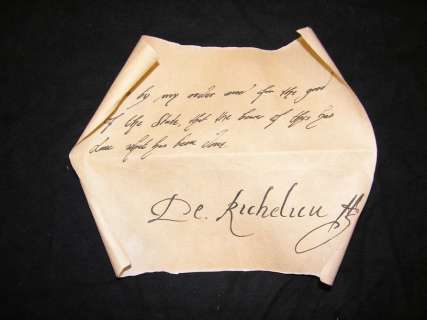 by my order and for the good
of the State, that the bearer of this has
done what has been done.
De. Richelieu